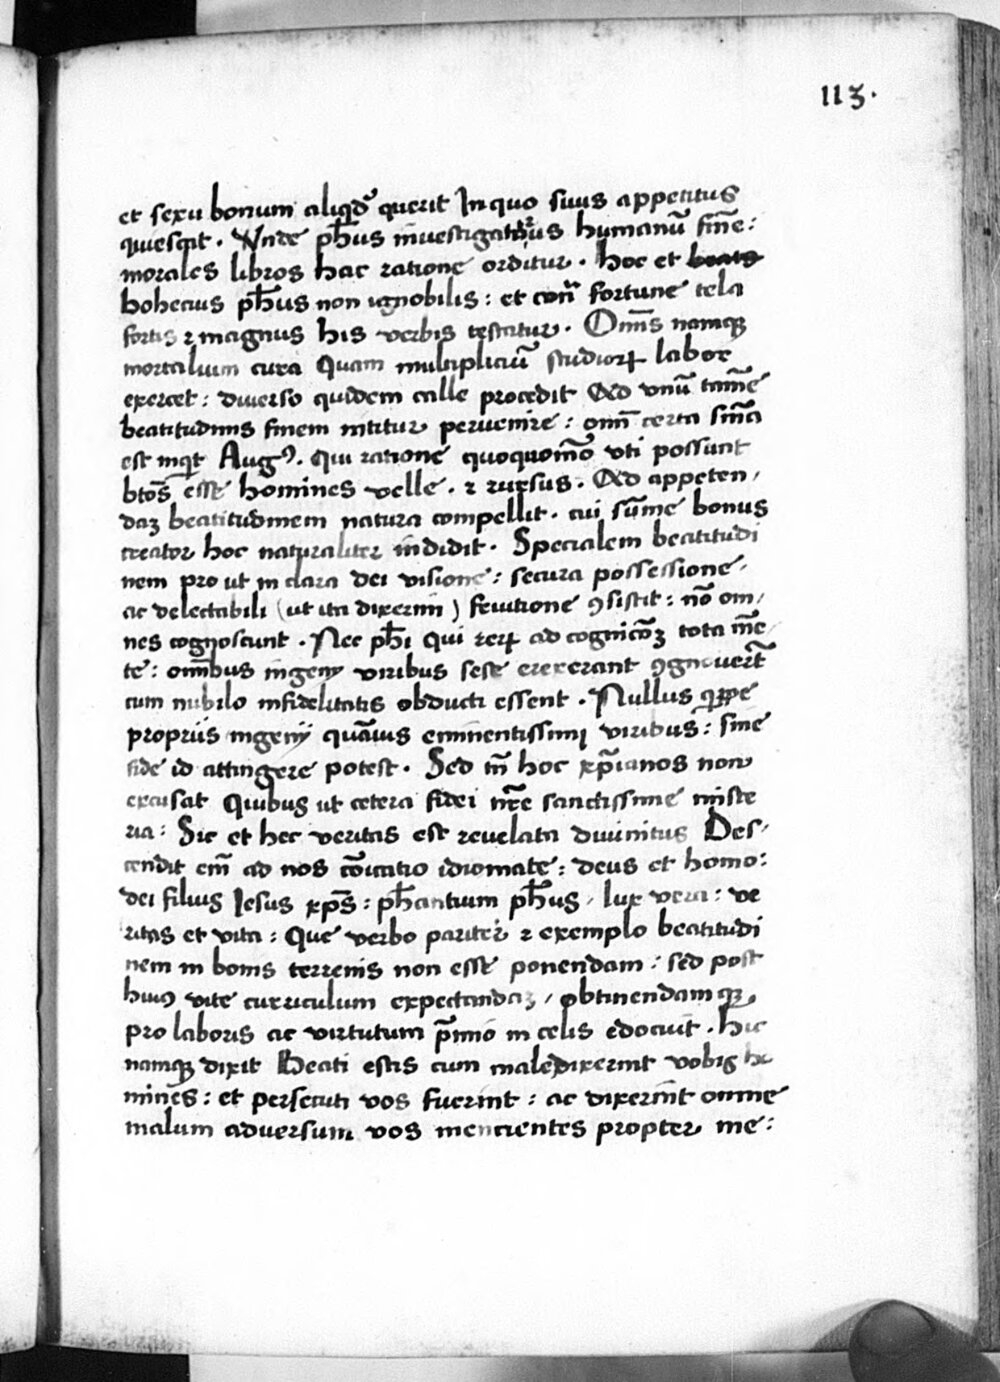 113.
et sexu bonum aliqd̾ querit In quo suus appetitus
quiescit. Vnde ph̄us inuestigaturus humanū finē:
morales libros hac ratione orditur. hoc et
bohecius ph̄us non ignobilis: et cont̄ fortune tela
fortis ⁊ magnus his verbis testatur. Om̄s namqꝫ
mortalium cura Quam multipliciū studioꝝ labor
exercet: diuerso quidem calle procedit Ad vnū tamē
beatitudinis finem nititur peruenire: om̄ certa sn̄ia
est inqt Augꝰ. Qui ratione quoquomō vti possunt
btōs esse homines velle. ⁊ rursus. Ad appeten/
daꝫ beatitudinem natura compellit. cui sūme bonus
creator hoc naturaliter indidit. Specialem beatitudi
nem pro ut in clara dei visione: secura possessione,
ac delectabili (ut ita dixerim) fruitione ꝯsistit: nō om/
nes cognoscunt. Nec ph̄i qui reꝝ ad cognicōꝫ tota mē/
te: om̄ibus ingenij viribus sese erexerant ꝯgnouerт̄
cum nubilo infidelitatis obducti essent. Nullus qppe
propriis ingenij quāuis eminentissimi viribus: sine
fide id attingere potest. Sed tn̄ hoc xp̄ianos non
excusat Quibus ut cetera fidei nr̄e sanctissime miste
ria: Sic et hec veritas est reuelata diuinitus Des/
cendit em̄ ad nos cōicatio idiomate: deus et homo:
dei filius Iesus xp̄s: ph̄antium ph̄us, lux vera: ve
ritas et vita: Que verbo pariter ⁊ exemplo beatitudi
nem in bonis terrenis non esse ponendam: sed post
huiꝰ vite curriculum expectandaꝫ, obtinendamqꝫ
pro laboris ac virtutum p̄mio in celis edocuit. Hic
namqꝫ dixit Beati estis cum maledixerint vobis ho
mines: et persecuti vos fuerint: ac dixerint omne
malum aduersum vos mencientes propter me: